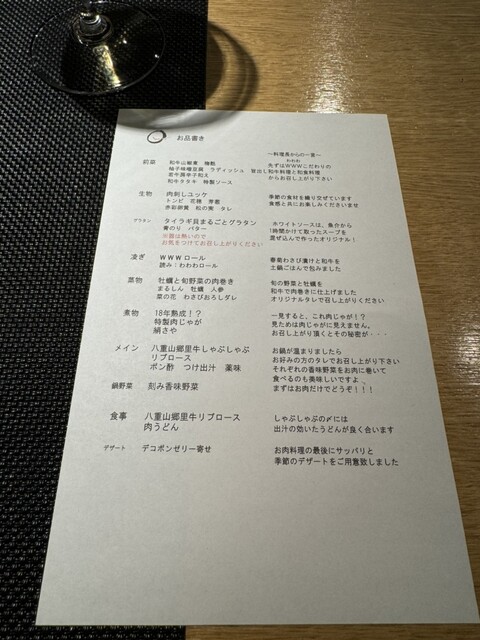 お品書き
ー料理長からの一言ー
前菜
和牛山椒煮
柚子味噌豆腐 ラディッシュ
若牛舞辛子和え
和牛タタキ 特製ソース
わわわ
先ずはWWWこだわりの
冒出し和牛料理と和食料理
からお召し上がり下さい
生物 肉刺しユッケ
トンビ 花穂 芽葱
赤彩胡瓜 松の実 タレ
季節の食材を織り交ぜています
食感と共にお楽しみくださいませ
グラタン タイラギ貝まるごとグラタン
青のり バター
※器は熱いので
お気をつけてお召し上がりください
ホワイトソースは、魚介から
1時間かけて取ったスープを
混ぜ込んで作ったオリジナル!
凌ぎ WWWロール
読み:わわわロール
春菊わさび漬けと和牛を
土鍋ごはんで包みました
蒸物 牡蠣と旬野菜の肉巻き
まるしん 牡蠣 人参
菜の花 わさびおろしダレ
旬の野菜と牡蠣を
和牛で肉巻きに仕上げました
オリジナルタレで召し上がりください
煮物 18年熟成!?
特製肉じゃが
絹さや
一見すると、これ肉じゃが!?
見ためは肉じゃがに見えません、
お召し上がり頂くとその秘密が・・・
メイン 八重山郷里牛しゃぶしゃぶ
リブロース
ポン酢 つけ出汁 薬味
お鍋が温まりましたら
お好みの方のタレでお召し上がり下さい
それぞれの香味野菜をお肉に巻いて
食べるのも美味しいですよ、
まずはお肉だけでどうぞ!!!
鍋野菜 刻み香味野菜
食事 八重山郷里牛リブロース
肉うどん
しゃぶしゃぶの〆には
出汁の効いたうどんが良く合います
デザート デコポンゼリー寄せ
お肉料理の最後にサッパリと
季節のデザートをご用意致しました